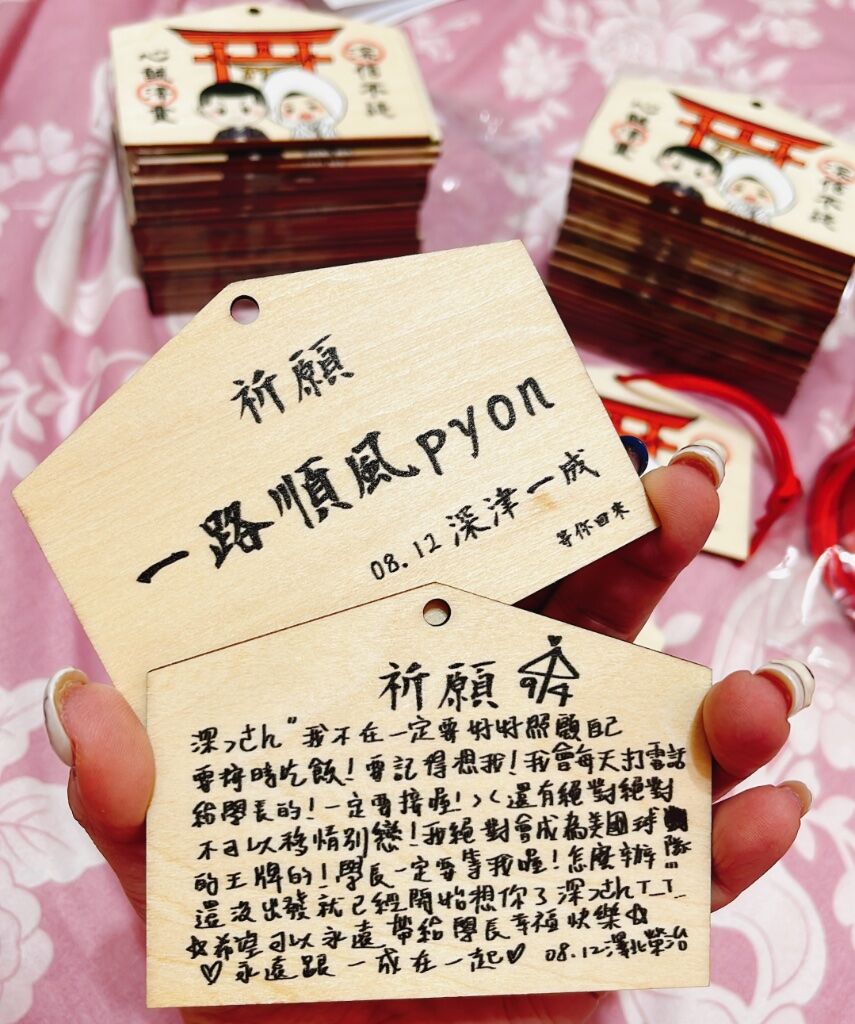 心誠則靈
深信不疑
心誠則靈
深信不疑
祈願
一路順風pyon
08.12 深津一成
等你回來
祈願 9/4
深っさん" 我不在一定要好好照顧自己
要按時吃飯！要記得想我！我會每天打電話
給學長的！一定要接喔！>< 還有絕對絕對
不可以移情別戀！我絕對會成為美國球隊
的王牌的！學長一定要等我喔！怎麼辦…
還沒出發就已經開始想你了深っさんT_T
☆希望可以永遠帶給學長幸福快樂☆
♡永遠跟一成在一起♡ 08.12澤北榮治